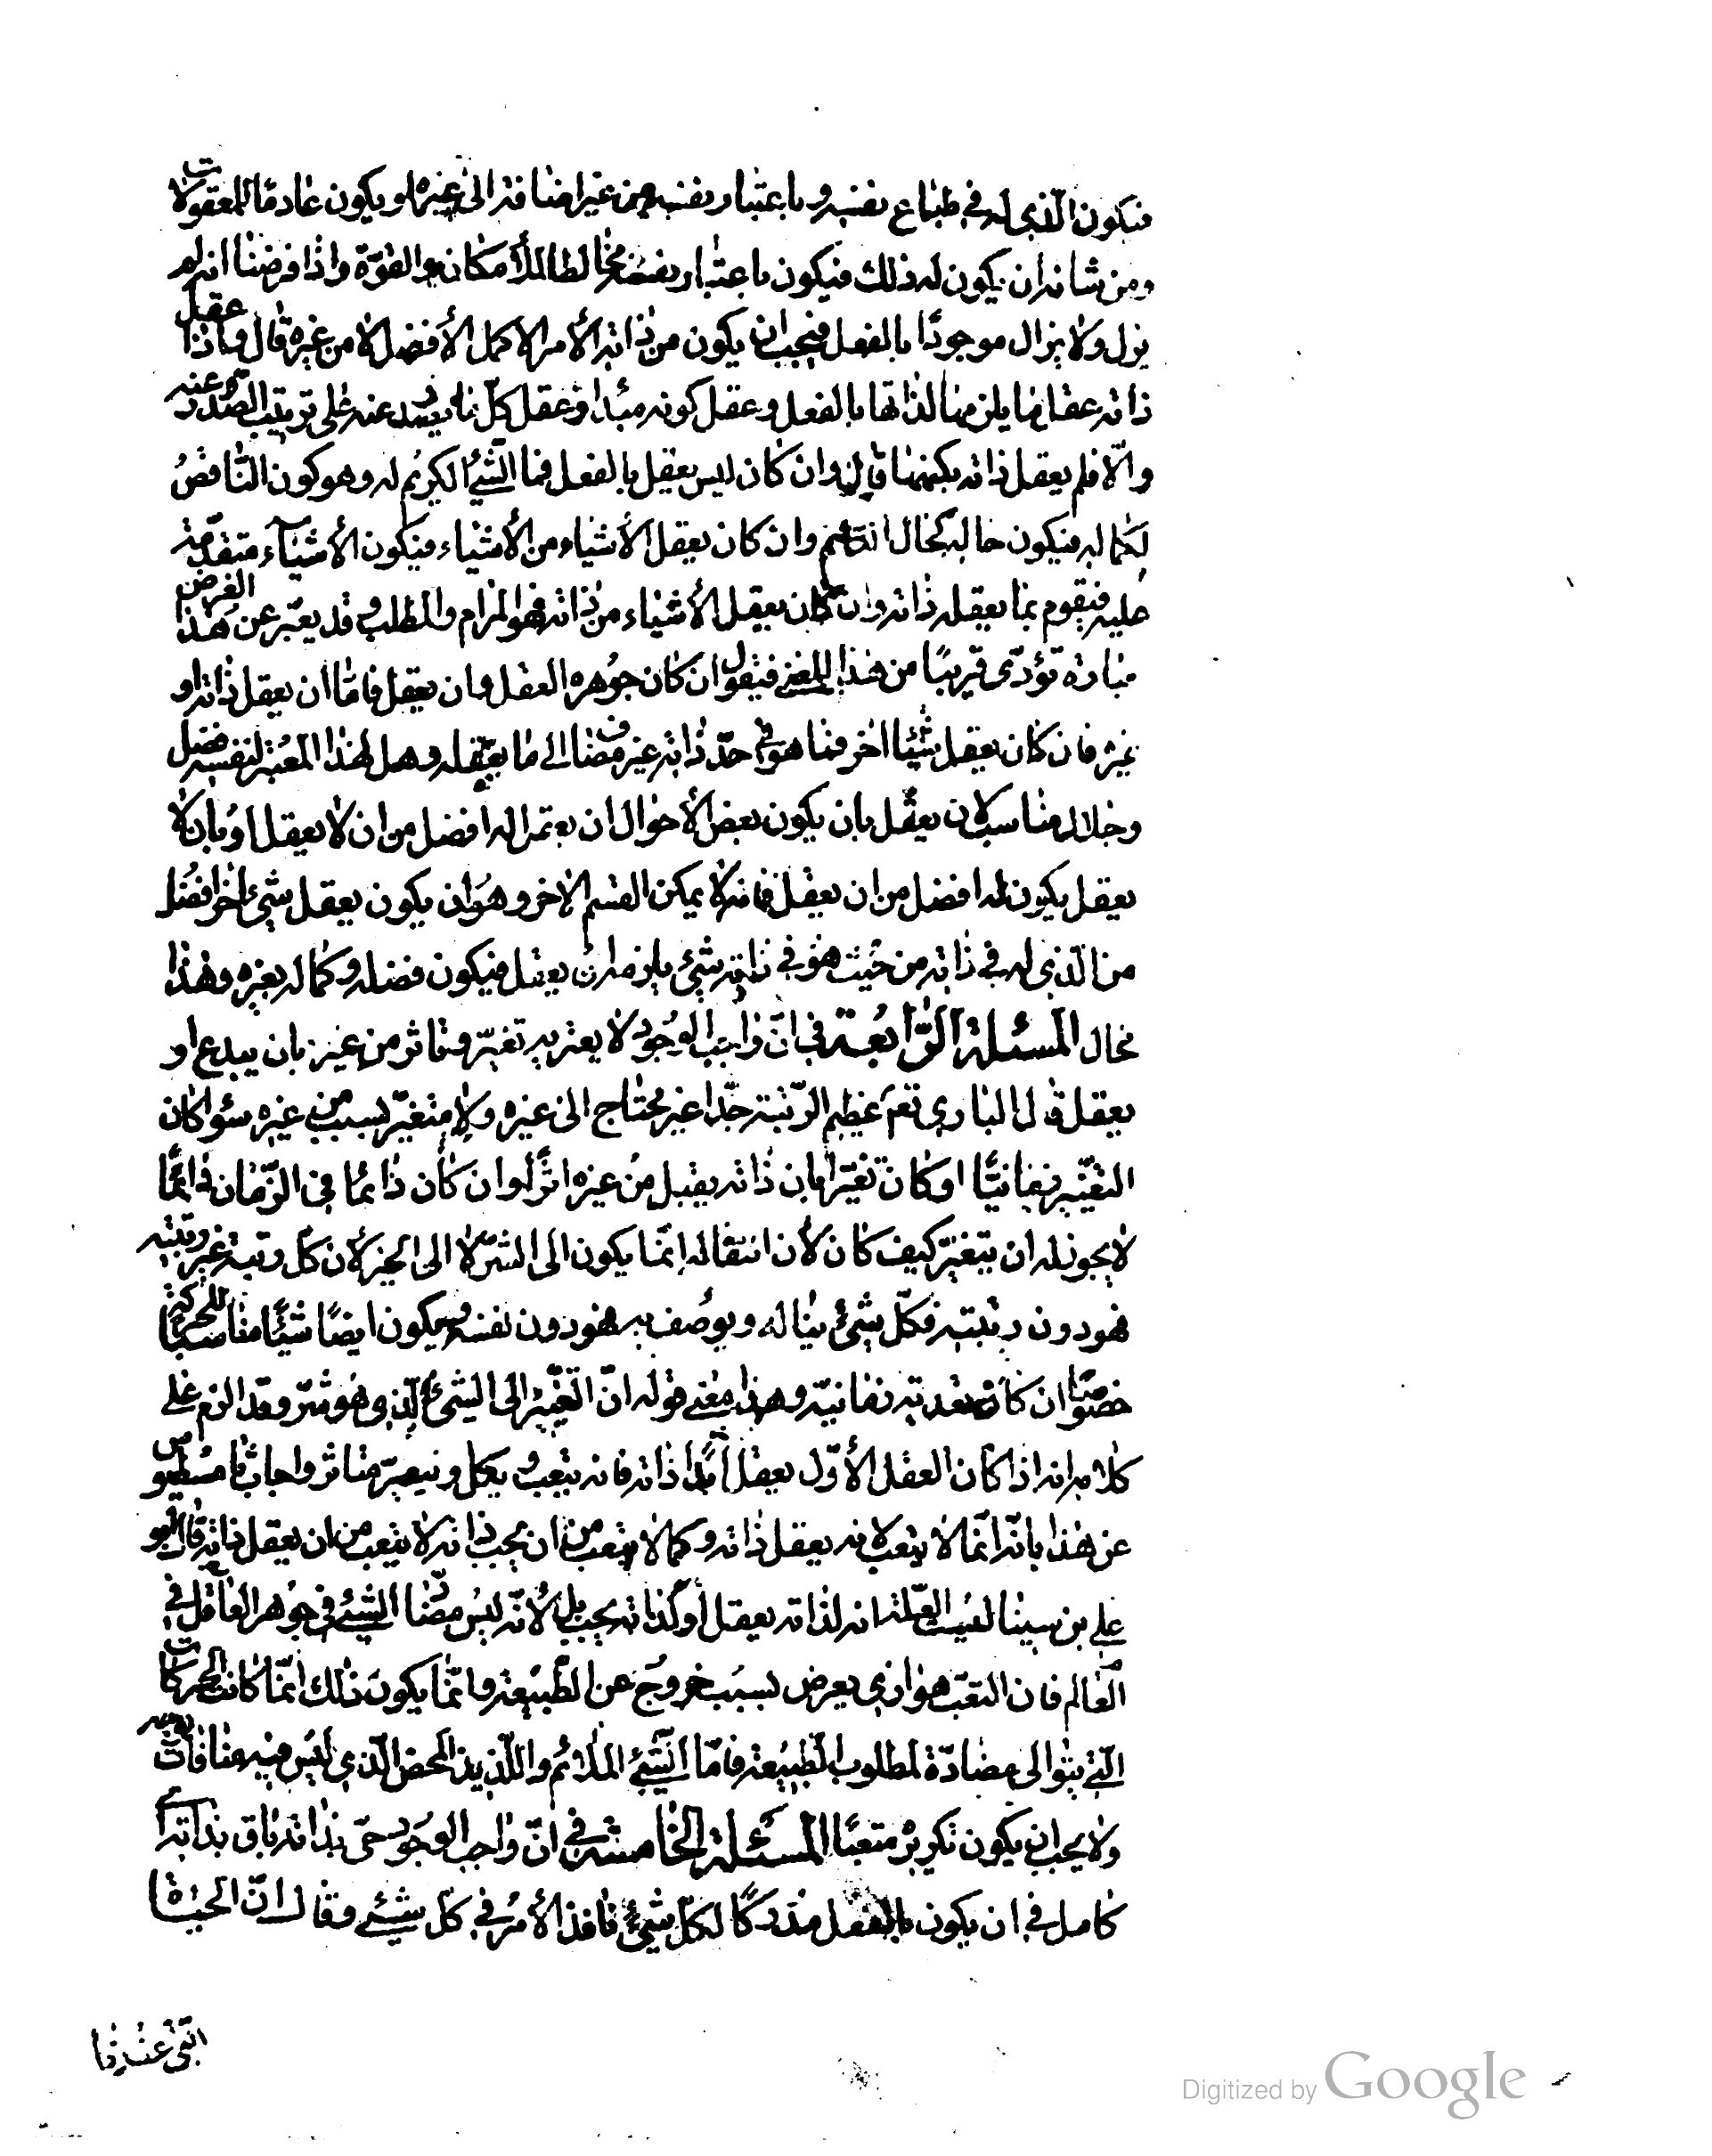 فيكون الذي له في طباع نفسه وباعتبار نفسه من غير اضافة الى غيره او يكون عادما للمعقولات
ومن شانه ان يكون له ذلك فيكون باعتبار نفسه مخالطا للأمكان والقوة واذا فرضنا انه لم
يزل ولا يزال موجودًا بالفعل فيجب ان يكون من ذاته الأمر الأكمل الأفضل لا من غيره قال واذا عقل
ذاته عقل ما يلزمها لذاتها بالفعل وعقل كونه مبدا وعقل كل ما يصدر عنه على ترتيب الصدور عنه
والّا فلم يعقل ذاته بكنهها قال وان كان ليس يعقل بالفعل فما الشئ الكريم له وهو كون الناقص
كماله فيكون حاله كحال النائم وان كان يعقل الأشياء من الأشياء فيكون الأشياء متقدمة
عليه فيقوم بما يعقله ذاته وان كان يعقل الأشياء من ذاته فهو المرام والمطلب وقد يعبّر عن هذا الغرض
بعبارة تؤدّى قريبًا من هذا المعنى فيقول ان كان جوهره العقل وان يعقل فامّا ان يعقل ذاته او
غيره فان كان يعقل شيئا اخر فما هو في حدّ ذاته غير مضاف الى ما يعقله وهل لهذا المعتبر لنفسه فضل
وجلال مناسب لان يعقل بان يكون بعض الأحوال ان يعقل له افضل من ان لا يعقل او بان لا
يعقل يكون له افضل من ان يعقل فانه لا يمكن القسم الاخر وهو ان يكون يعقل شئ اخر افضل
من الذي له في ذاته من حيث هو في ذاته شئ يلزمه ان يعقل فيكون فضله وكماله بغيره وهذا
محال المسئلة الرّابعة في انّ واجب الوجود لا يعتريه تغيّر وتاثر من غيره بان يبدع او
يعقل قال البارى تعم عظيم الرّتبة جدّا غير محتاج الى غيره ولا متغيّر بسبب من غيره سؤا كان
التغيّر زمانيًّا او كان تغيّرا بان ذاته يقبل من غيره اثرًا وان كان دائما في الزّمان وانّما
لا يجوز له ان يتغيّر كيف كان لأن انتقاله انّما يكون الى الشرّ لا الى الخير لأن كلّ رتبة غير رتبته
فهو دون رتبته فكلّ شئ يناله ويوصف به فهو دون نفسه ويكون ايضًا شيئًا مناسبًا للحركة
خصوصًا ان كانت بعديته زمانية وهذا معنى قوله انّ التغيّر الى الشئ الّذي هو شرّ وقد الزم على
كلامه انه اذا كان العقل الأوّل يعقل ابدًا ذاته فانه يتعب ويكل ويتغيّر ويتاثر واجاب ثامسطيوس
عن هذا بانّه انّما لا يتعب لانه يعقل ذاته وكما لا يتعب من ان يحب ذاته لا يتعب من ان يعقل ذاته قال ابو
على بن سينا ليست العلة انه لذاته يعقل او لذاته يحب بل لأنّه ليس مضادّا لشئ في جوهر العاقل في
العالم فان التعب هو اذى يعرض بسبب خروج عن الطبيعة وانّما يكون ذلك انّما كانت الحركات
التى يتوالى مضادّة لمطلوب الطبيعة فامّا الشئ الملائم واللذيذ المحض الّذي ليس فيه منافات بوجه
ولا يجب ان يكون تكريره متعبًا المسئلة الخامسة في انّ واجب الوجود حىّ بذاته باق بذاته اى
كامل في ان يكون بالفعل مدركًا لكلّ شئ نافذ الأمر في كل شئ وقال انّ الحيوة
التى عندنا
Digitized by Google